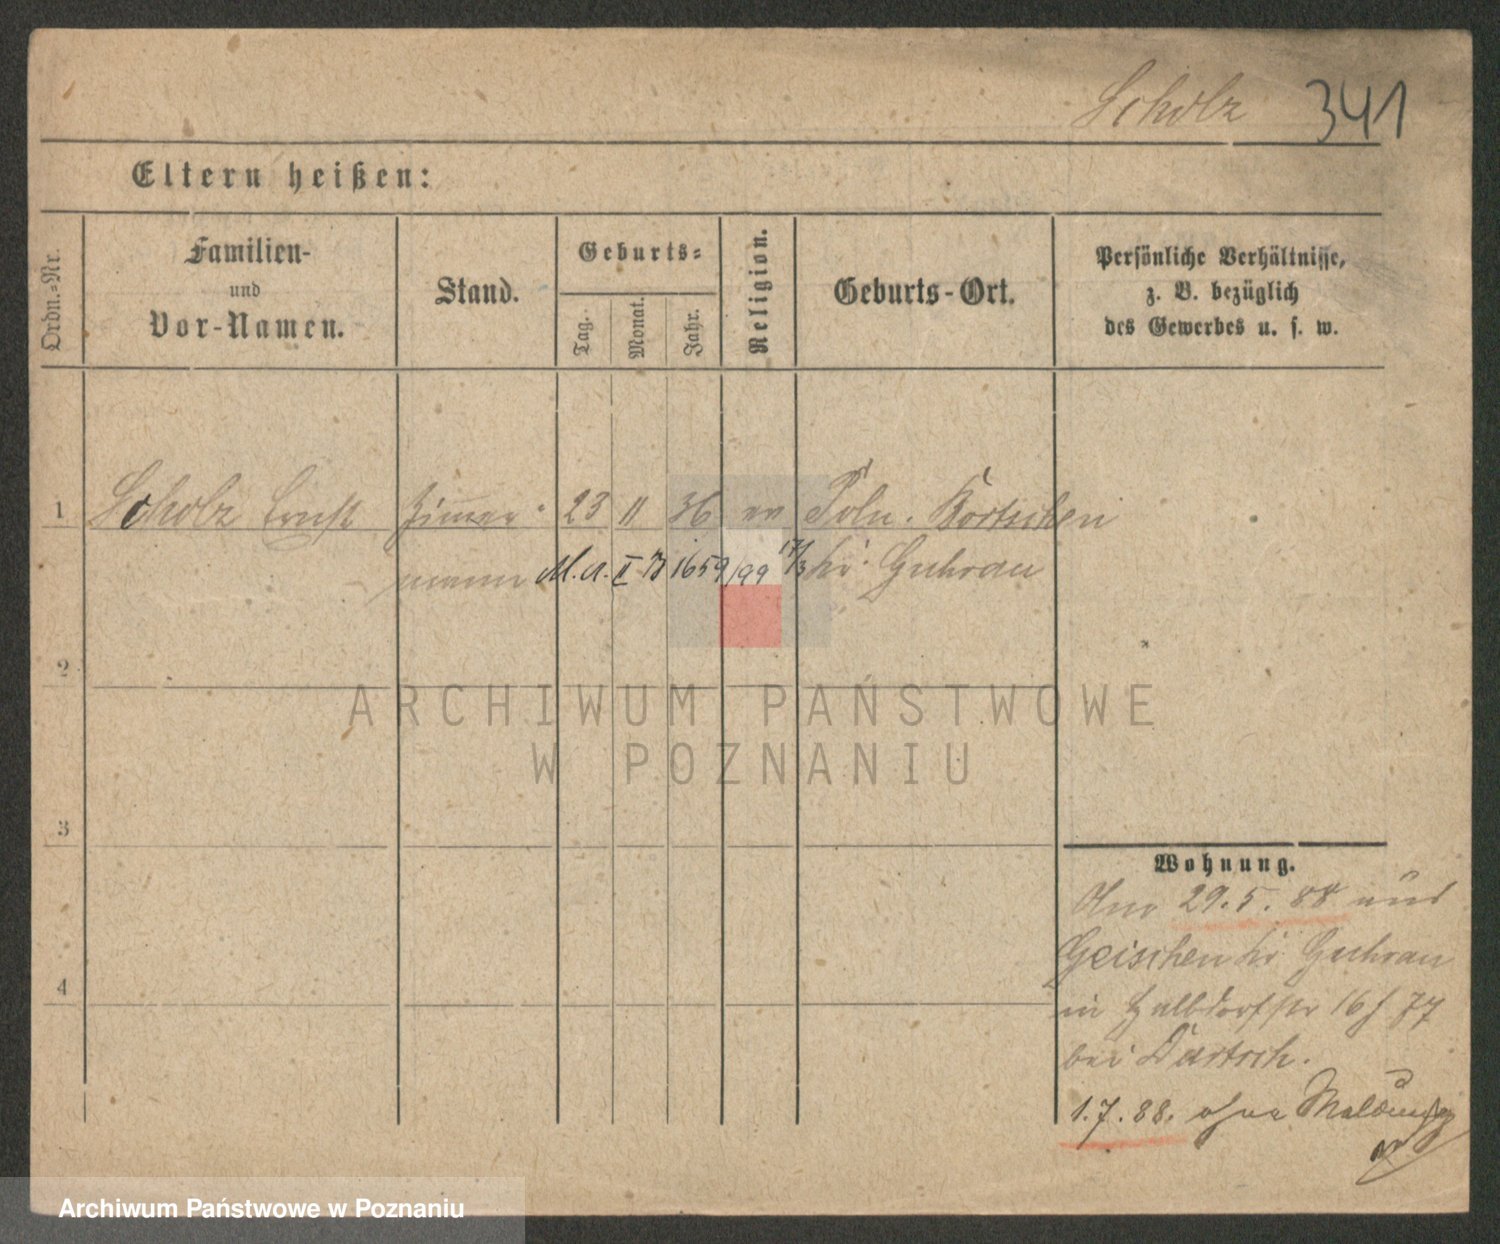 Scholz 341
Eltern heißen:
Ordn.-Nr.
Familien-
und
Vor-Namen.
Stand.
Geburts-
Tag.
Monat.
Jahr.
Religion.
Geburts-Ort.
Persönliche Verhältnisse,
z. B. bezüglich
des Gewerbes u. s. w.
1 Scholz Ernst Zimmer- 23 11 36 ev Poln. Bortschen
mann M.A. II B 1659/99 17/3 Kr Guhrau
2
ARCHIWUM PAŃSTWOWE
W POZNANIU
3
Wohnung.
29.5.88 aus
Geischen Kr Guhrau
in Halbdorfstr 16
bei Bartsch.
4
1.7.88. ohne Meldung
Archiwum Państwowe w Poznaniu